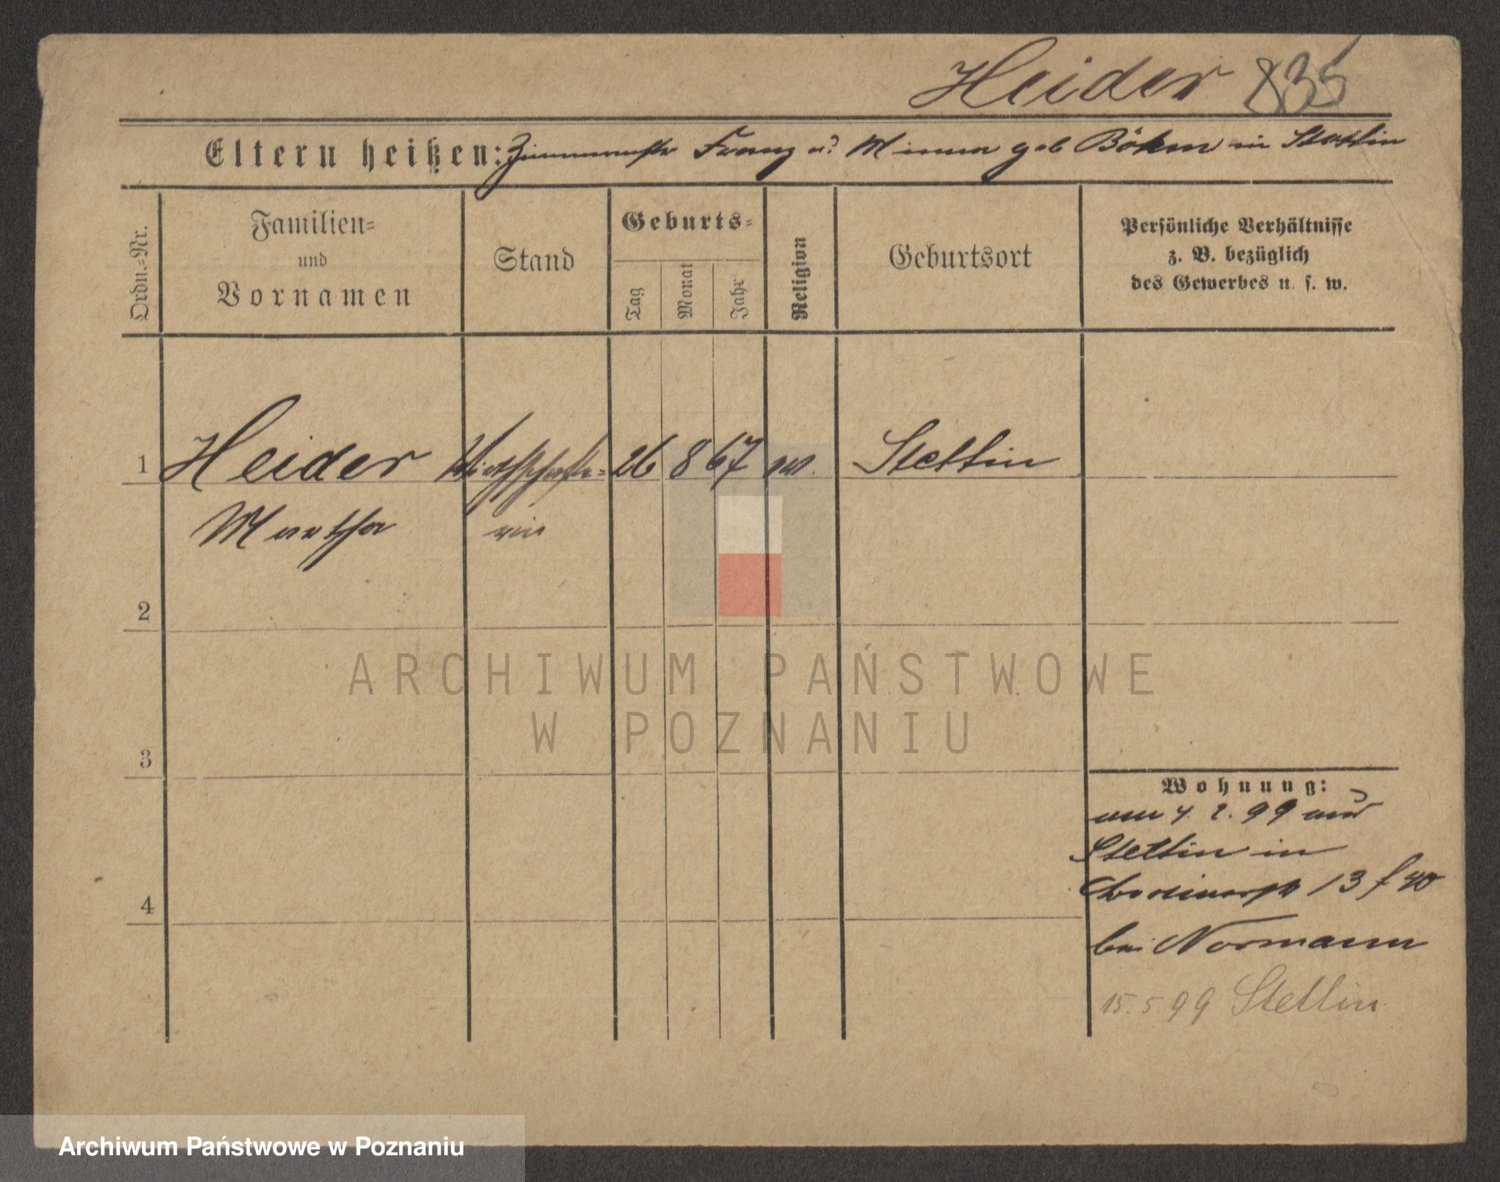 Heider 835
Eltern heißen: Zimmermstr Franz u. Minna geb Böhm in Stettin
Ordn.-Nr.
Familien-
und
Vornamen
Stand
Geburts-
Tag
Monat
Jahr
Religion
Geburtsort
Persönliche Verhältnisse
z. B. bezüglich
des Gewerbes u. s. w.
1 Heider Wirthschafte- 26 8 67 ev. Stettin
Martha rin
2
ARCHIWUM PAŃSTWOWE
W POZNANIU
3
Wohnung:
am 4. 2. 99 aus
Stettin in
13
4
bei Normann
15. 5. 99 Stettin
Archiwum Państwowe w Poznaniu